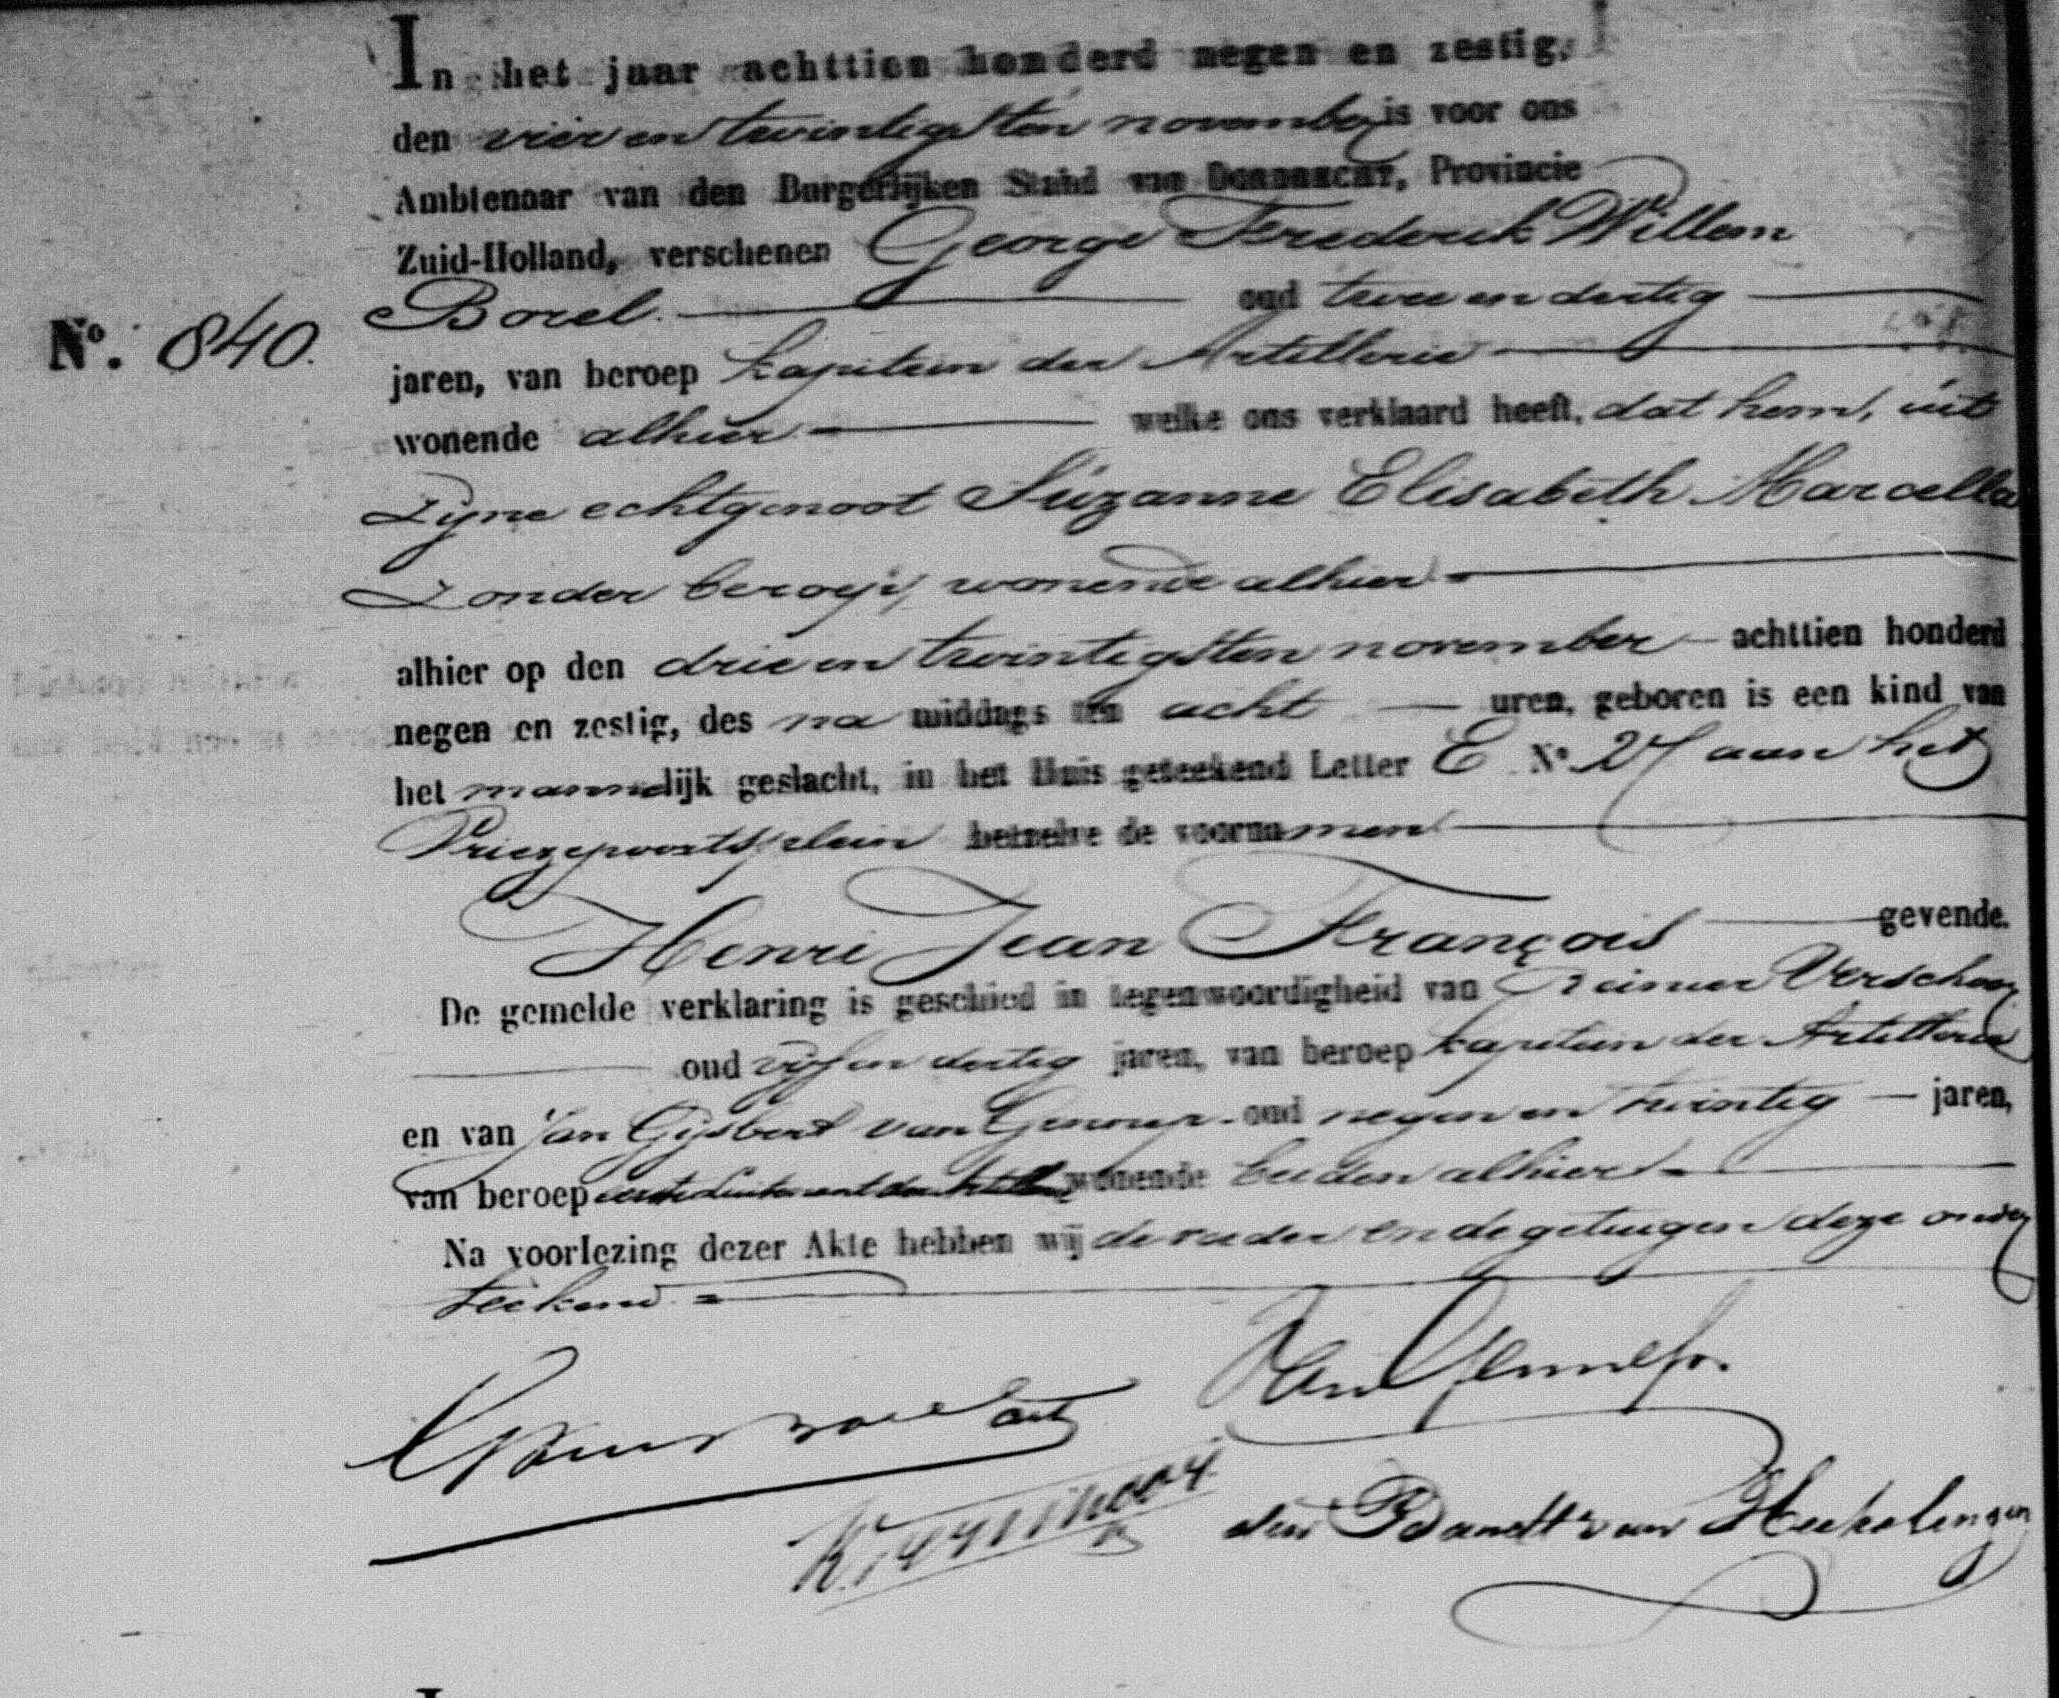 In het jaar achttien honderd negen en zestig,
den vier en twintigsten november is voor ons
Ambtenaar van den Burgerlijken Stand van DORDRECHT, Provincie
Zuid-Holland, verschenen George Frederik Willem
No. 840.
Borel oud twee en dertig
jaren, van beroep kapitein der Artillerie
wonende alhier welke ons verklaard heeft, dat hem, uit
Zijne echtgenoot Suzanne Elisabeth Marcella
Zonder beroep, wonende alhier
alhier op den drie en twintigsten november achttien honderd
negen en zestig, des na middags ten acht uren, geboren is een kind van
het mannelijk geslacht, in het Huis geteekend Letter E No 27 aan het
Vriezepoortsplein hetzelve de voornamen
Henri Jean François gevende.
De gemelde verklaring is geschied in tegenwoordigheid van Reinier Verschoor
oud vijf en dertig jaren, van beroep kapitein der Artillerie
en van Jan Gijsbert van Gennep oud negen en twintig jaren,
van beroep eerste luitenant der Artillerie wonende beiden alhier
Na voorlezing dezer Akte hebben wij de vader en de getuigen deze onder
teekend
Van Gennep.
den Bandt van Heekelingen